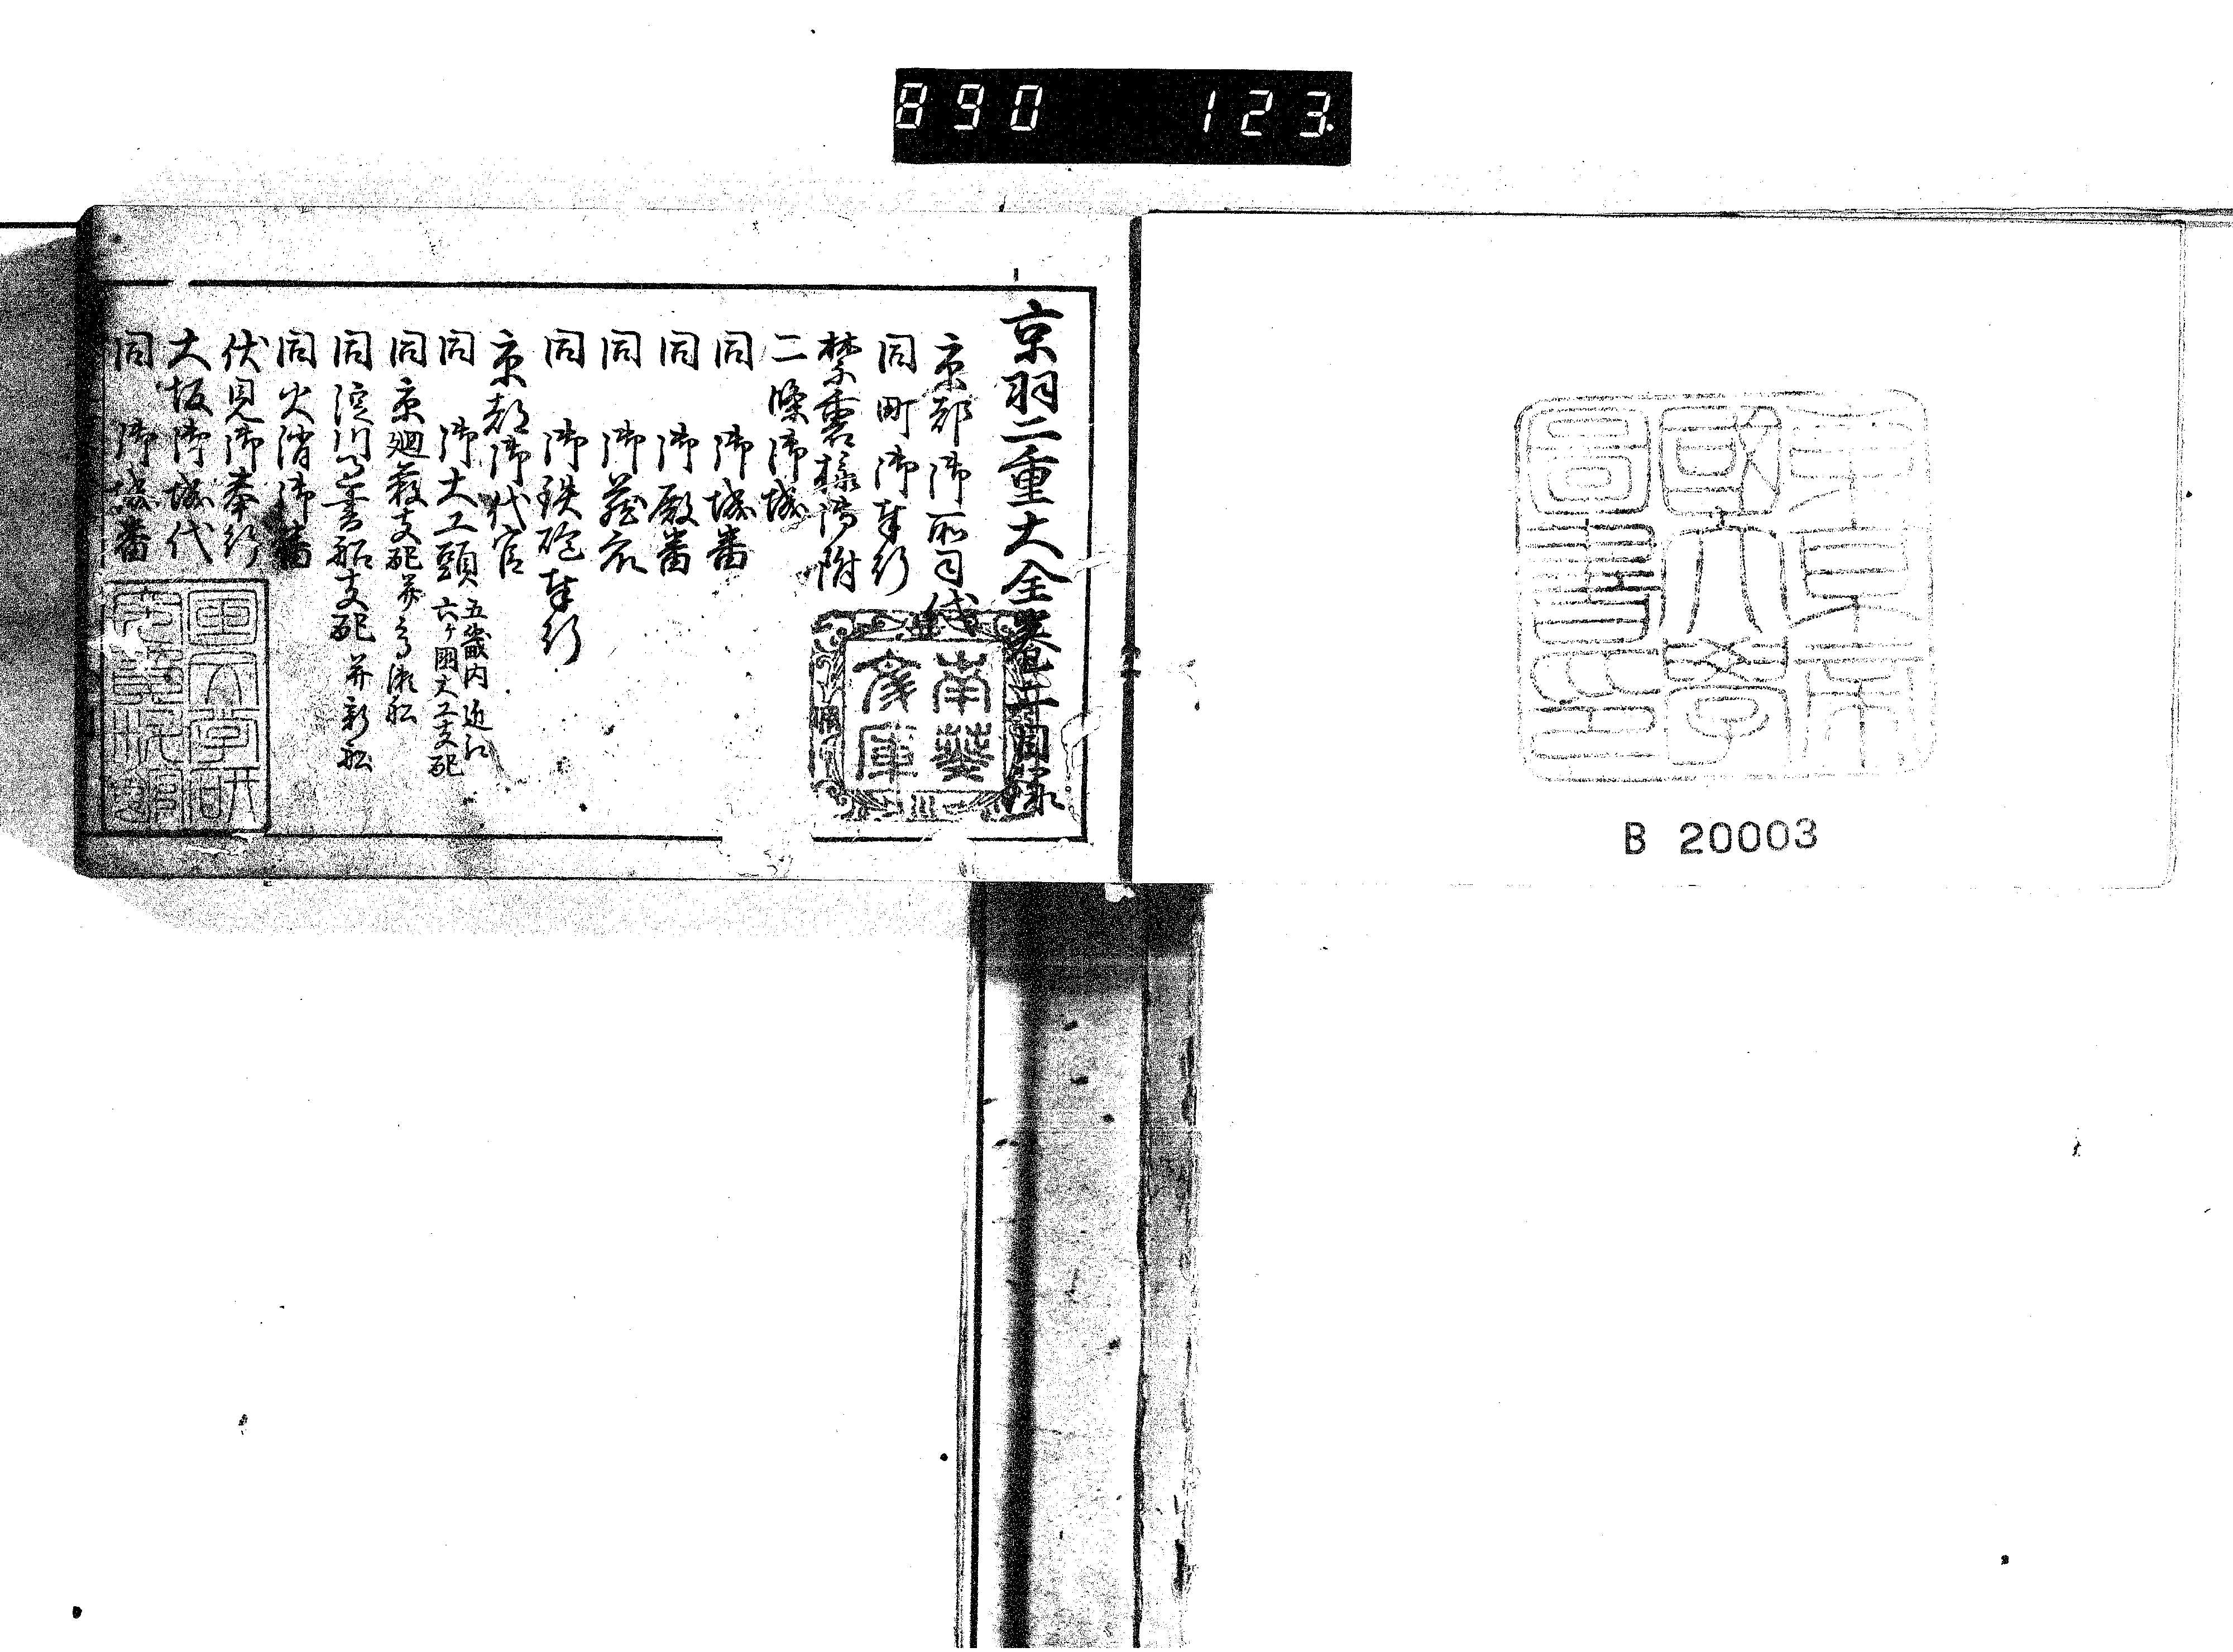 890 123.
東京帝
國大學
圖書印
B 20003
京羽二重大全巻一并目録
京都御所司代
同町御奉行
禁裏様御附
二條御城
同 御城番
同 御殿番
同 御蔵衆
同 御鉄砲奉行
京都御代官
同 御大工頭 五畿内近江
六ケ国大工支配
同京廻藪支配并高瀬船
同淀川過書船支配并新船
同火消御番
伏見御奉行
大坂御城代
同 御城番
南葵
文庫